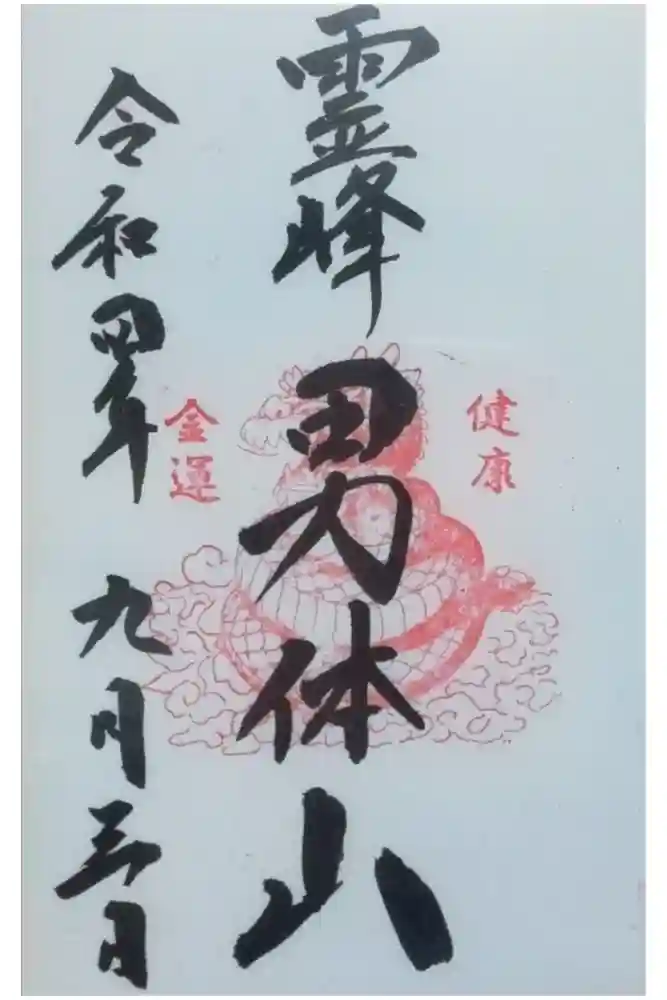 霊峰男体山
健康
金運
令和四年九月三日